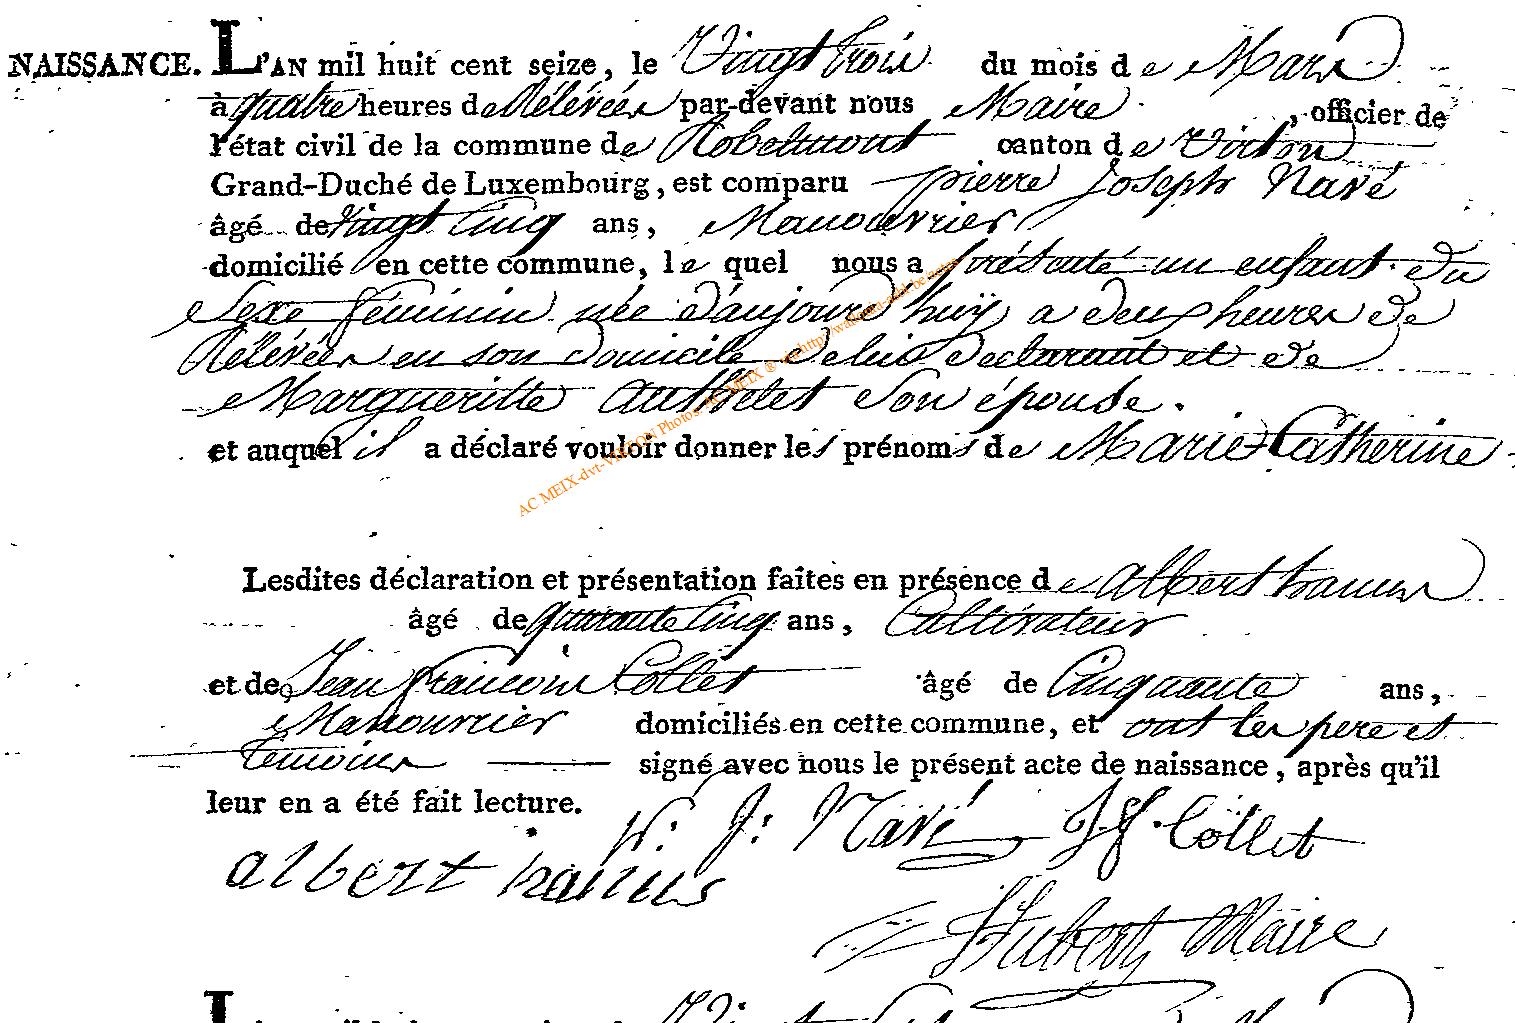 NAISSANCE. L'AN mil huit cent seize, le Vingt trois du mois de Mars
à quatre heures de Rélévées par-devant nous Maire, officier de
l'état civil de la commune de Robelmont canton de Virton
Grand-Duché de Luxembourg, est comparu pierre Joseph Navé
âgé de vingt Cinq ans, Manouvrier
domicilié en cette commune, le quel nous a présenté un enfant du
Sexe féminin née d'aujourd'huÿ a deux heures de
Rélévées en son domicile de lui declarant et de
Margueritte authelet Son épouse.
et auquel il a déclaré vouloir donner les prénoms de Marie Catherine
AC MEIX-dvt-VIRTON Photos: AC MEIX ®
Lesdites déclaration et présentation faites en présence de albert hanus
âgé de quarante Cinq ans, Cultivateur
et de Jean francois Collet âgé de Cinquante ans,
Manouvrier domiciliés en cette commune, et ont les pere et
temoins signé avec nous le présent acte de naissance, après qu'il
leur en a été fait lecture.
p: J: Navé Jf. Collet
albert hanus
Hubert Maire